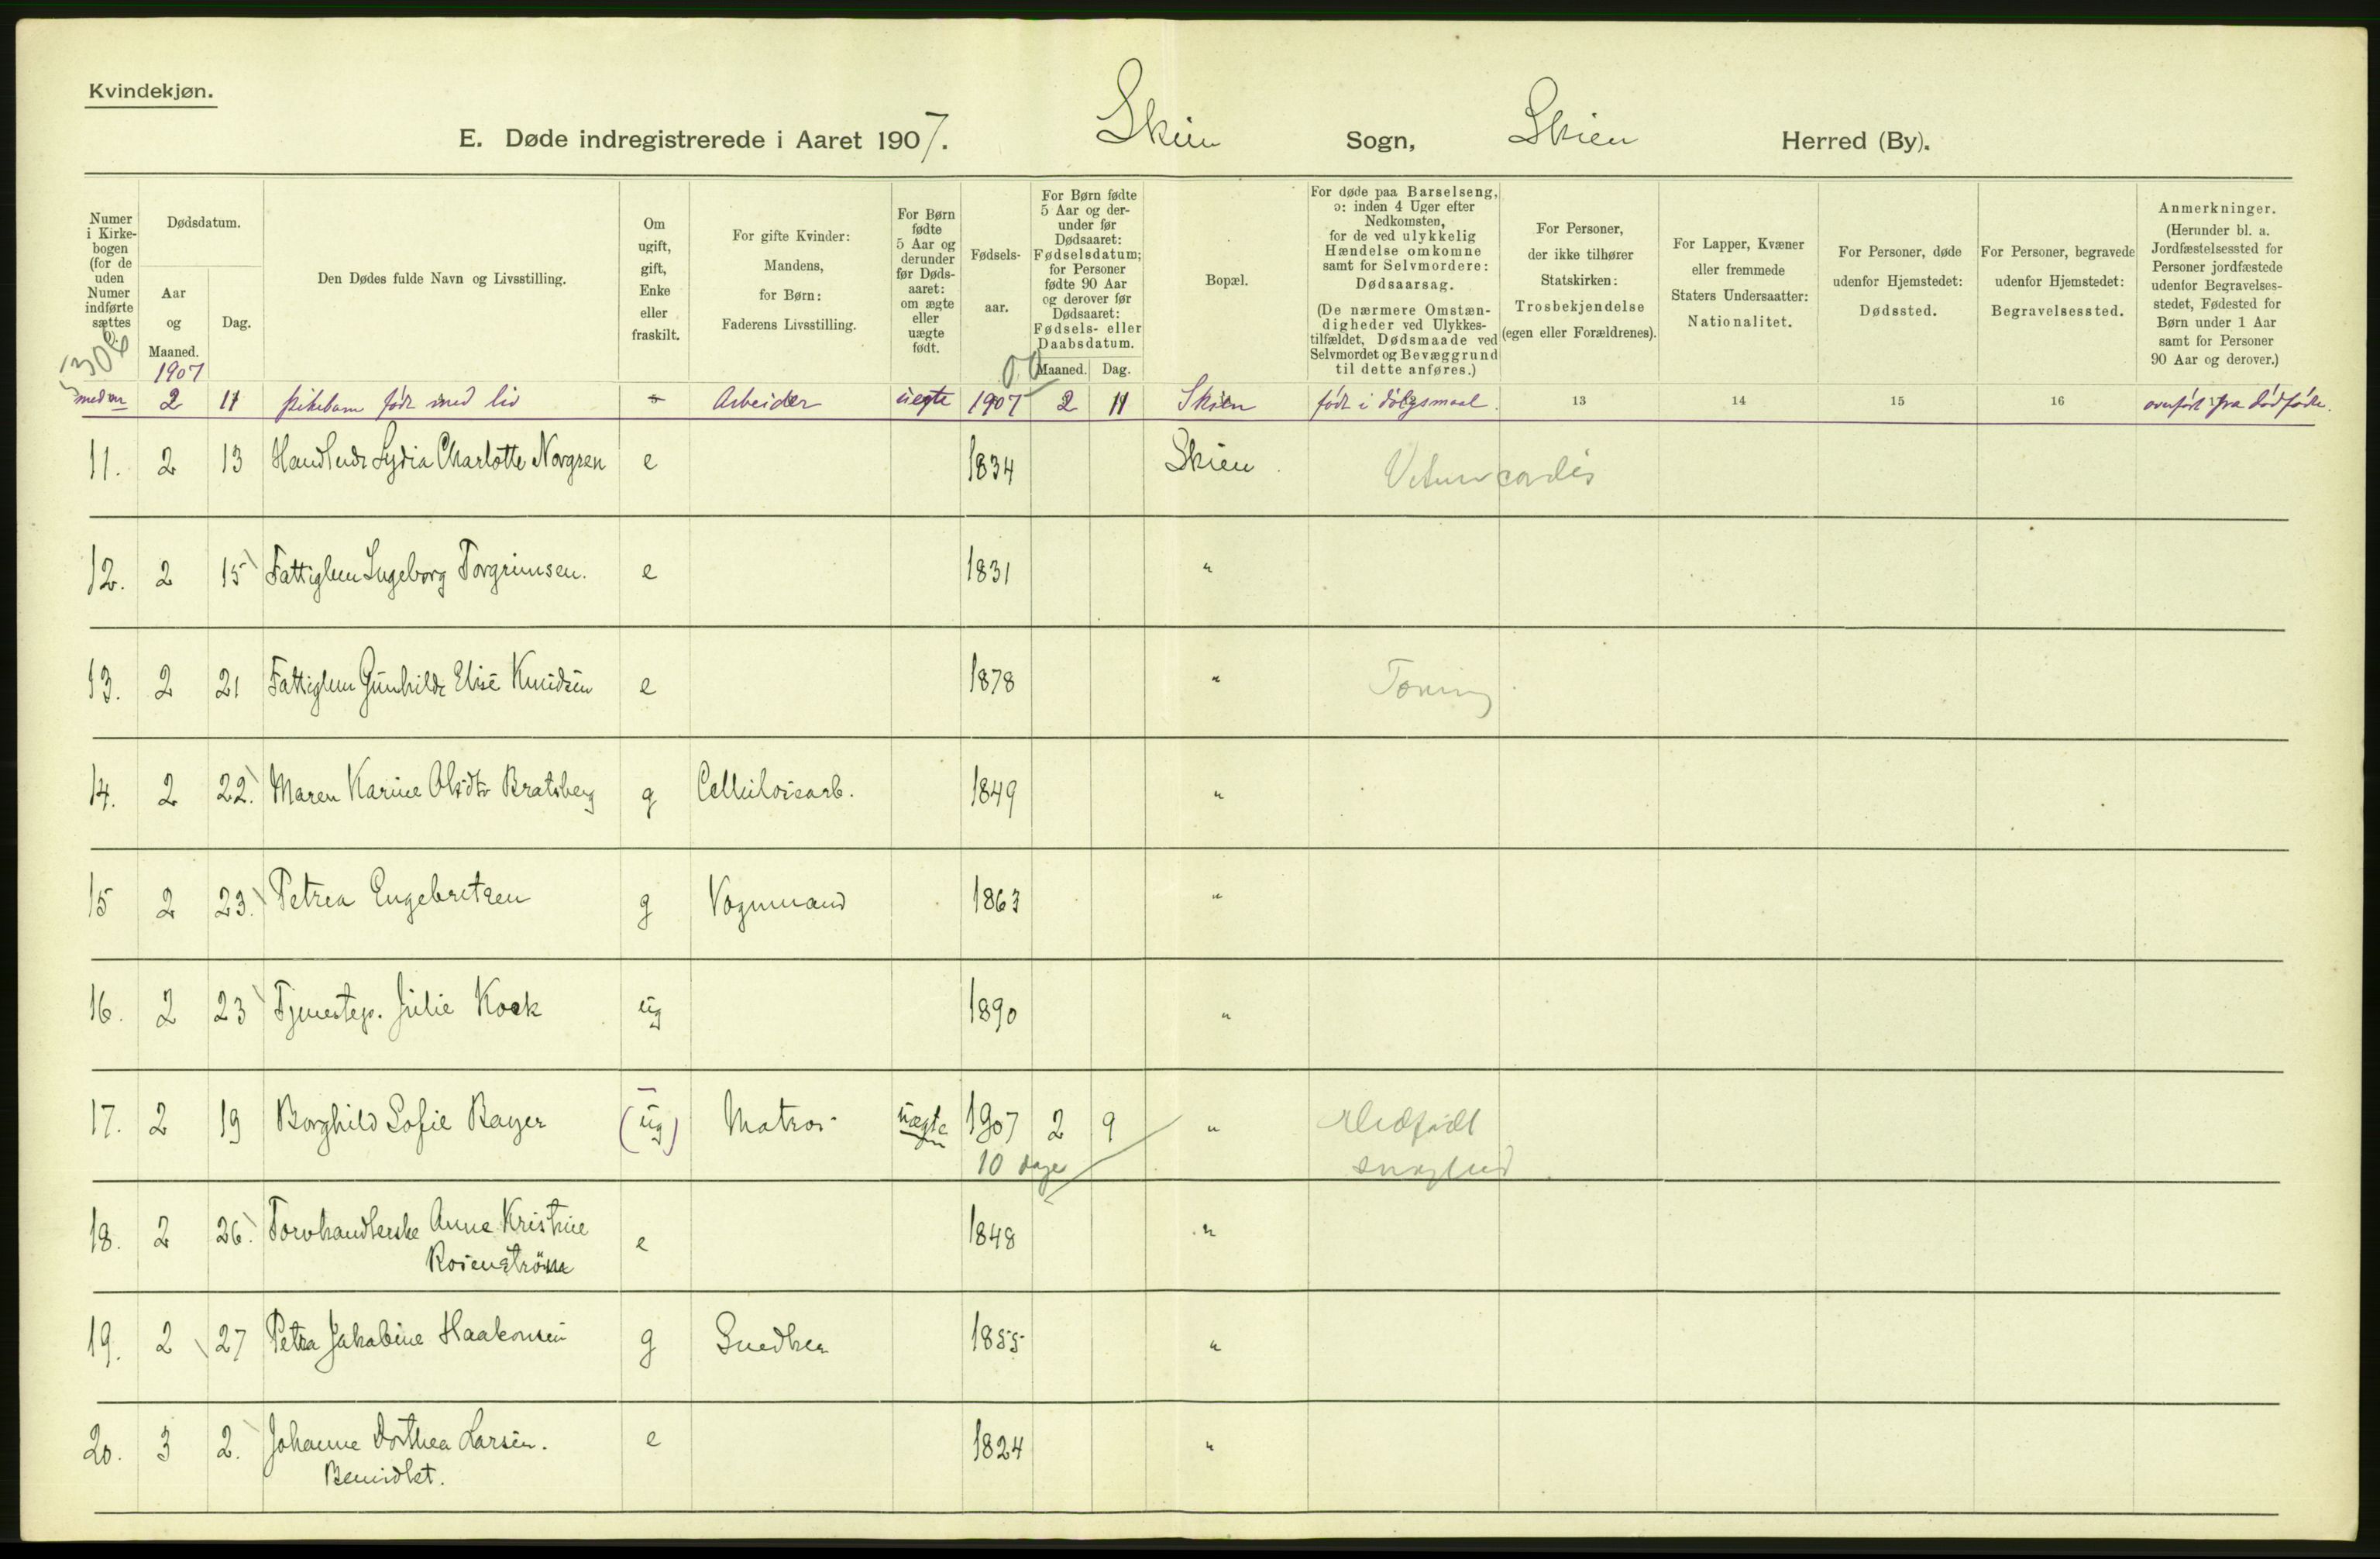 Kvindekjøn.
E. Døde indregistrerede i Aaret 1907. Skien Sogn, Skien Herred (By).
Numer i Kirke-bogen (for de uden Numer indførte sættes
Dødsdatum.
Aar og Maaned.
Dag.
Den Dødes fulde Navn og Livsstilling.
Om ugift, gift, Enke eller fraskilt.
For gifte Kvinder: Mandens, for Børn: Faderens Livsstilling.
For Børn fødte 5 Aar og derunder før Døds-aaret: om ægte eller uægte født.
Fødsels-aar.
For Børn fødte 5 Aar og der-under før Dødsaaret: Fødselsdatum; for Personer fødte 90 Aar og derover før Dødsaaret: Fødsels- eller Daabsdatum.
Maaned. Dag.
Bopæl.
For døde paa Barselseng, ɔ: inden 4 Uger efter Nedkomsten, for de ved ulykkelig Hændelse omkomne samt for Selvmordere: Dødsaarsag.
(De nærmere Omstæn-digheder ved Ulykkes-tilfældet, Dødsmaade ved Selvmordet og Bevæggrund til dette anføres.)
For Personer, der ikke tilhører Statskirken: Trosbekjendelse (egen eller Forældrenes).
For Lapper, Kvæner eller fremmede Staters Undersaatter: Nationalitet.
For Personer, døde udenfor Hjemstedet: Dødssted.
For Personer, begravede udenfor Hjemstedet: Begravelsessted.
Anmerkninger. (Herunder bl. a. Jordfæstelsessted for Personer jordfæstede udenfor Begravelses-stedet, Fødested for Børn under 1 Aar samt for Personer 90 Aar og derover.)
1907
2 11 pikebarn født med liv Arbeider uegte 1907 2 11 Skien født i dølgsmaal. 13 14 15 16 overført fra dødfødte.
11. 2 13 Lydia Charlotte Norgren e 1834 Skien. cordis
12. 2 15 Fattiglem Ingeborg Torgrimsen. e 1831 "
13. 2 21 Fattiglem Gunhilde Elise Knudsen e 1878 " Tæring
14. 2 22. Maren Karine Olsdtr Bratsberg g Cellulosearb. 1849 "
15 2 23. Petrea Engebretsen g Vognmand 1863 "
16. 2 23 Tjenestep. Julie Kock ug 1890 "
17. 2 19 Borghild Sofie Bayer (ug) Matros uægte 1907 2 9 " Medfødt
10 dage svaghed
18. 2 26. Torvhandlerske Anne Kristine
Rosenström e 1848 "
19. 2 27 Petra Jakobine Haakonsen g Snedker 1855 "
20. 3 2. Johanne Dorthea Larsen. e 1824 "
Bemidlet.